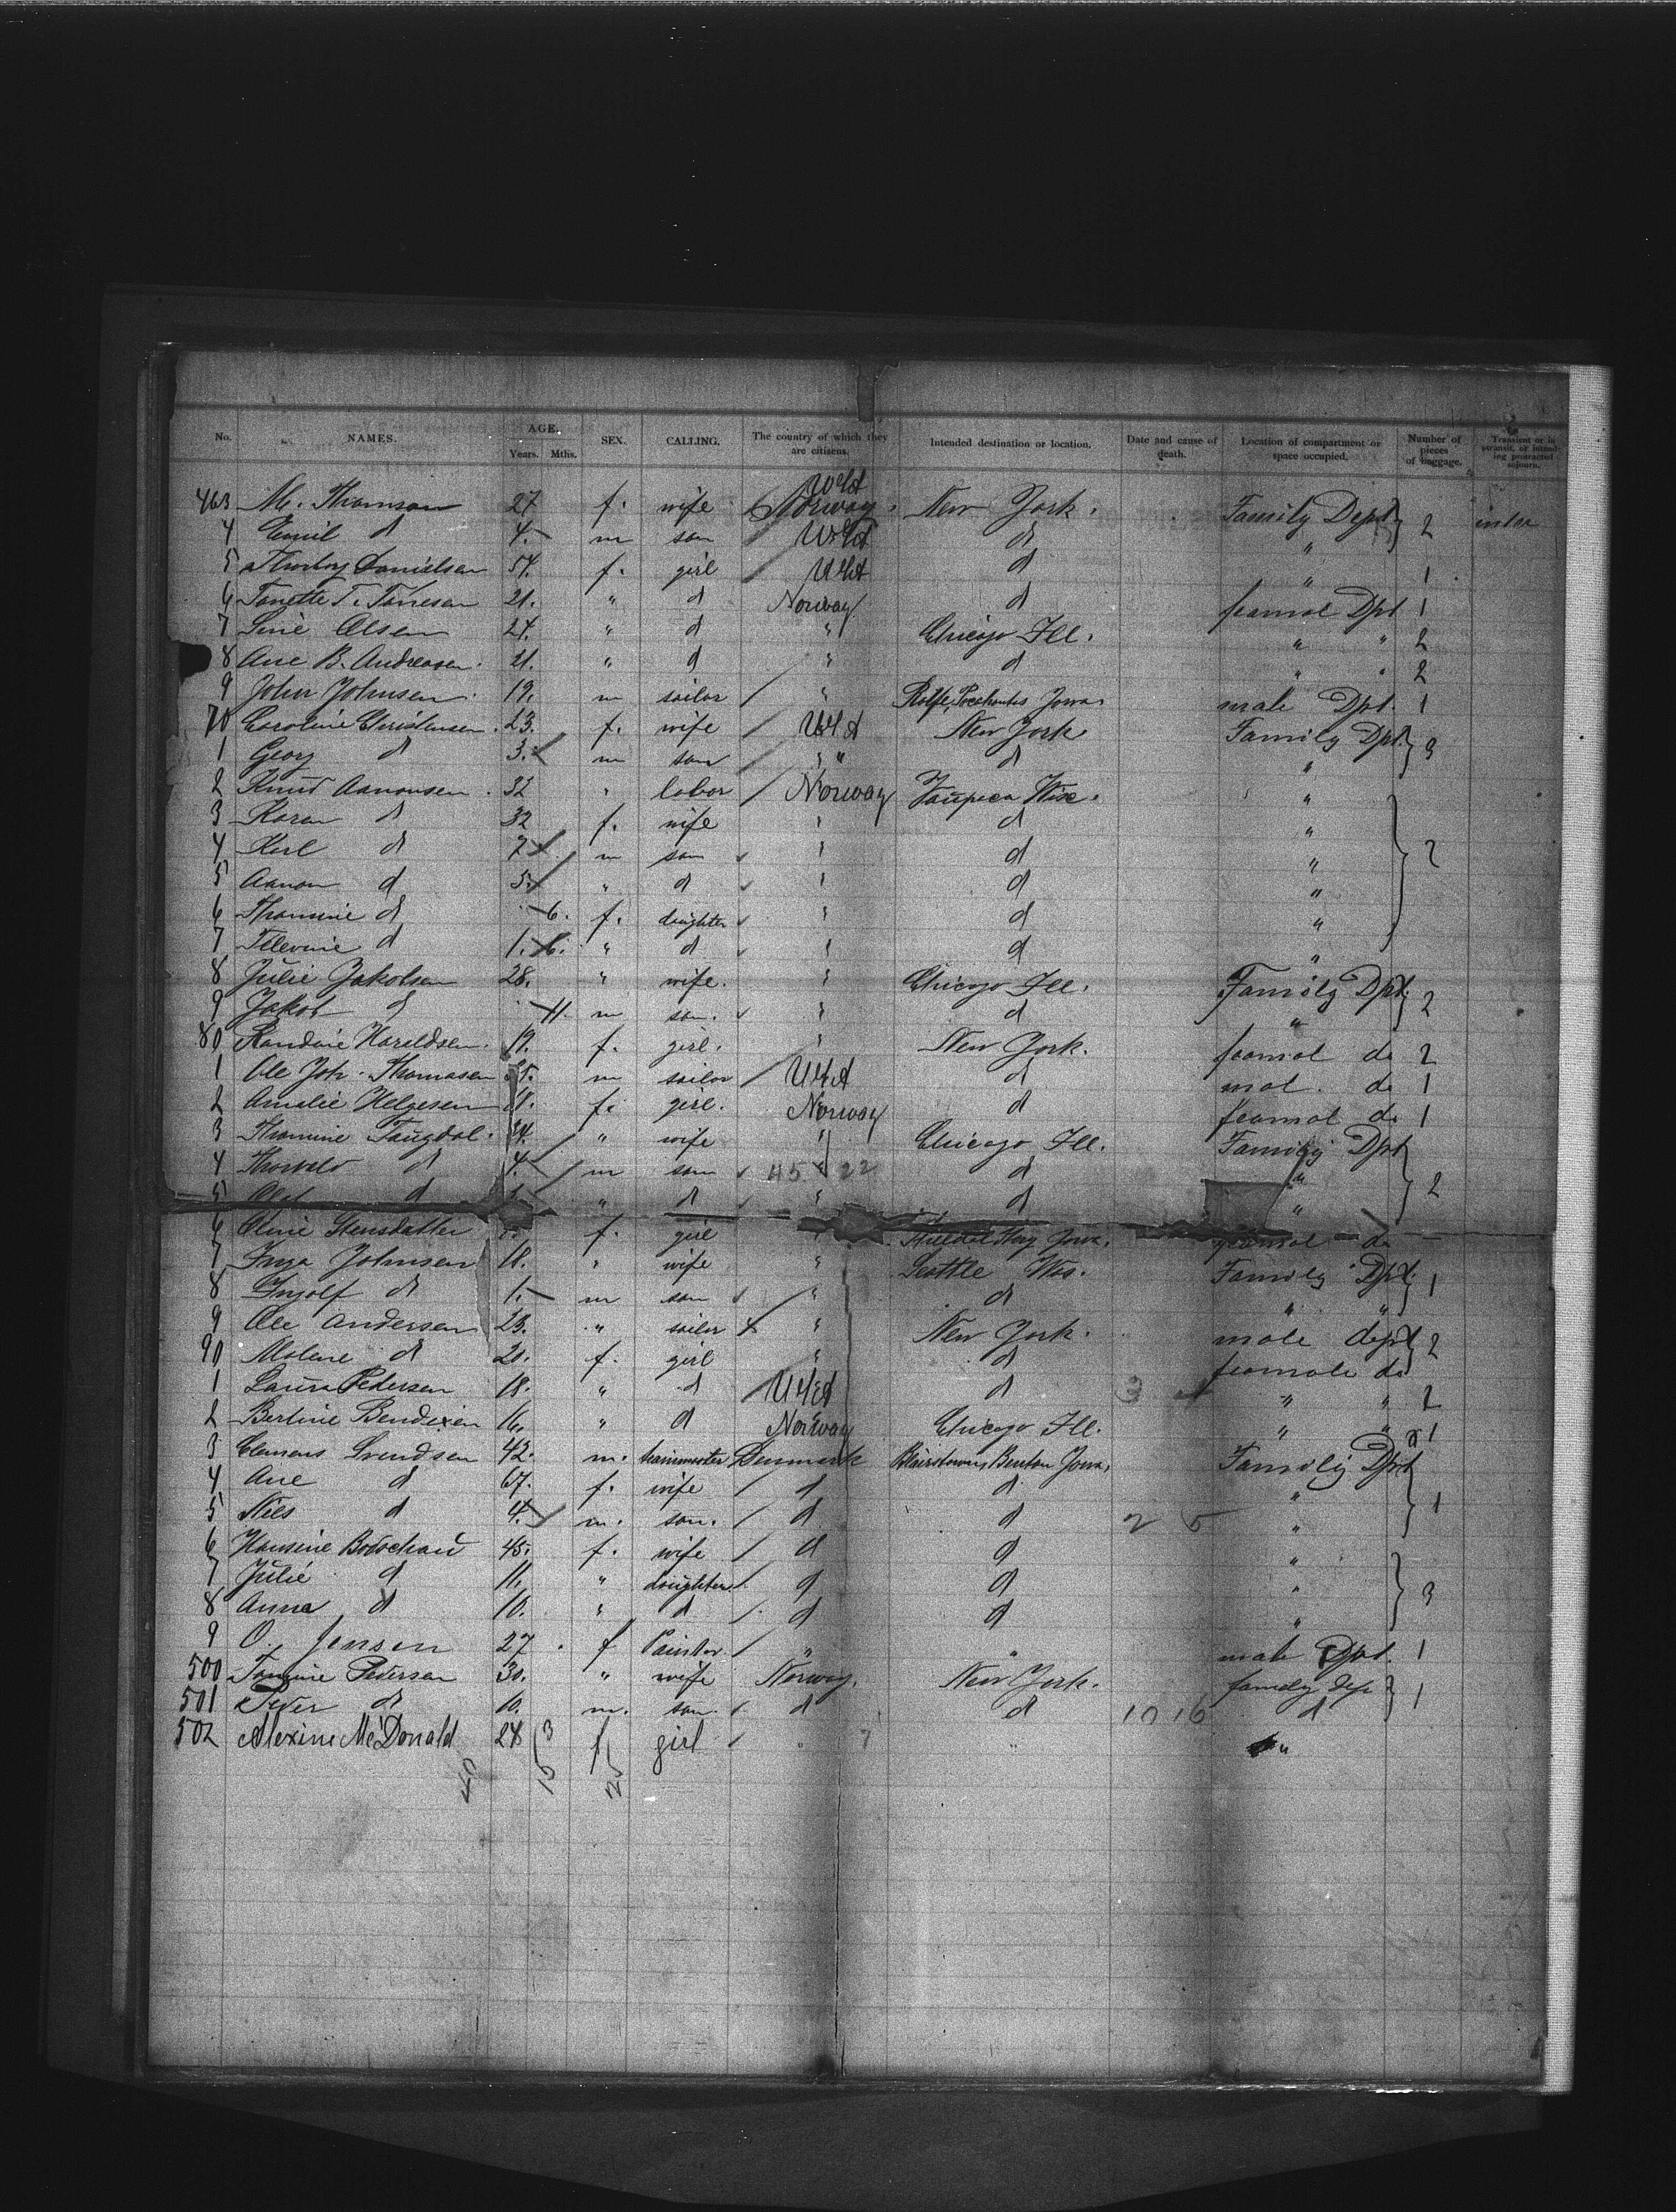 No. NAMES. AGE. Years. Mths. SEX. CALLING. The country of which they are citizens. Intended destination or location. Date and cause of death. Location of compartment or space occupied. Number of pieces of baggage. Transient or in transit, or intending protracted sojourn.
463 M. Thomson 27 f. wife Norway USA New York. Family Dept 2
4 Emil d 4. m son USA d "
5 Danielsen 54. f. girl USA d " 1
6 Tonette T. Tonnesen 21. " d Norway d feamol Dpt 1
7 Sine Olsen 24. " d " Chicago Ill. " " 2
8 Ane B. Andreasen. 21. " d " d " " 2
9 John Johnsen. 19. m sailor " Rolfe, Pocahontas Jowa. male Dpt. 1
70 Caroline Christensen. 23. f. wife USA New York Family Dpt. 3
1 Georg d 3. m son " " d "
2 Knud Aanonsen. 32 " labor Norway Wisc. "
3 Karen d 32 f. wife " d "
4 Karl d 7 m son " d " 2
5 Aanon d 5. " d " d "
6 Thomine d 6. f. daughter " d "
7 d 1. 6. " d " d "
8 Julie Jakobsen 28. " wife. " Chicago Ill. Family Dpt. 2
9 Jakob d 11. m son. " d "
80 Randine Haraldsen. 19. f. girl. " New York. feamol do 2
1 Ole Joh. Thomasen m sailor USA d mal. do 1
2 Amalie Helgesen f. girl. Norway d feamol do 1
3 Thomine Taugdal. 24. " wife " Chicago Ill. Family Dpt
4 Thorvald d 4. m son 45 22 d " 2
5 Olaf d " d " d "
6 Oline f. girl " Jowa. feamol do
7 Inga Johnsen 18. " wife " Seattle Was. Family Dpt. 1
8 Ingolf d 1. m son " d " "
9 Ole Andersen 23. " sailor " New York. male dept 2
90 Malene d 20. f. girl " d feamole do
1 Laura Pedersen 18. " d USA d 3 " " 2
2 Bertine Bendixen 16. " d Norway Chicago Ill. " " 1
3 Clemens Svendsen 42. m. Denmark Blairstown, Benton Jowa. Family Dpt
4 Ane d 67. f. wife d d " 1
5 Niels d 4. m. son. d d 2 5 "
6 Hansine 45. f. wife d d "
7 Julie d 11. " daughter d d " 3
8 Anna d 10. " d d d "
9 O. Jensen 27. f Painter " " male Dpt. 1
500 Tomine Pedersen 30. " wife Norway. New York. family dep 1
501 Peder d 10. m. son. d d 10 16 d
502 Alexine McDonald 28 f girl " " "
40 15 25